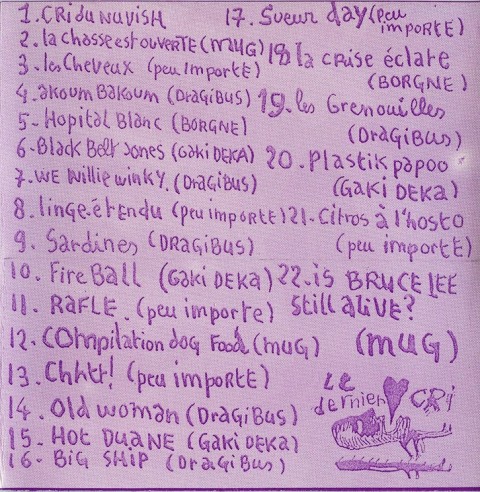 1. CRi du NaViSH
2. la chasse est ouVERTE (MUG)
3. les Cheveux (peu importE)
4. akoum Bakoum (DRAGiBUS)
5- Hopital Blanc (BORGNE)
6- Black Belt Jones (Gaki DEKA)
7. WE Willie winky. (DRAGiBUS)
8. linge-étendu (peu importE)
9. Sardines (DRAGiBUS)
10. Fire Ball (Gaki DEKA)
11. RAFLE. (peu importe)
12. COmpilation dog Food (MUG)
13. Chhtt! (peu importE)
14. Old woman (DRAGiBUS)
15. HOT DUANE (Gaki DEKA)
16- BiG SHiP (DRAGiBUS)
17. Sueur day (peu
importE)
18 la CRise éclate
(BORGNE)
19. les Grenouilles
(DRAGiBUS)
20. Plastik papoo
(GAKi DEKA)
21. Citros à l'hosto
(peu importE)
22. is BRUCE LEE
Still aLiVE?
(MUG)
LE
dernier CRi